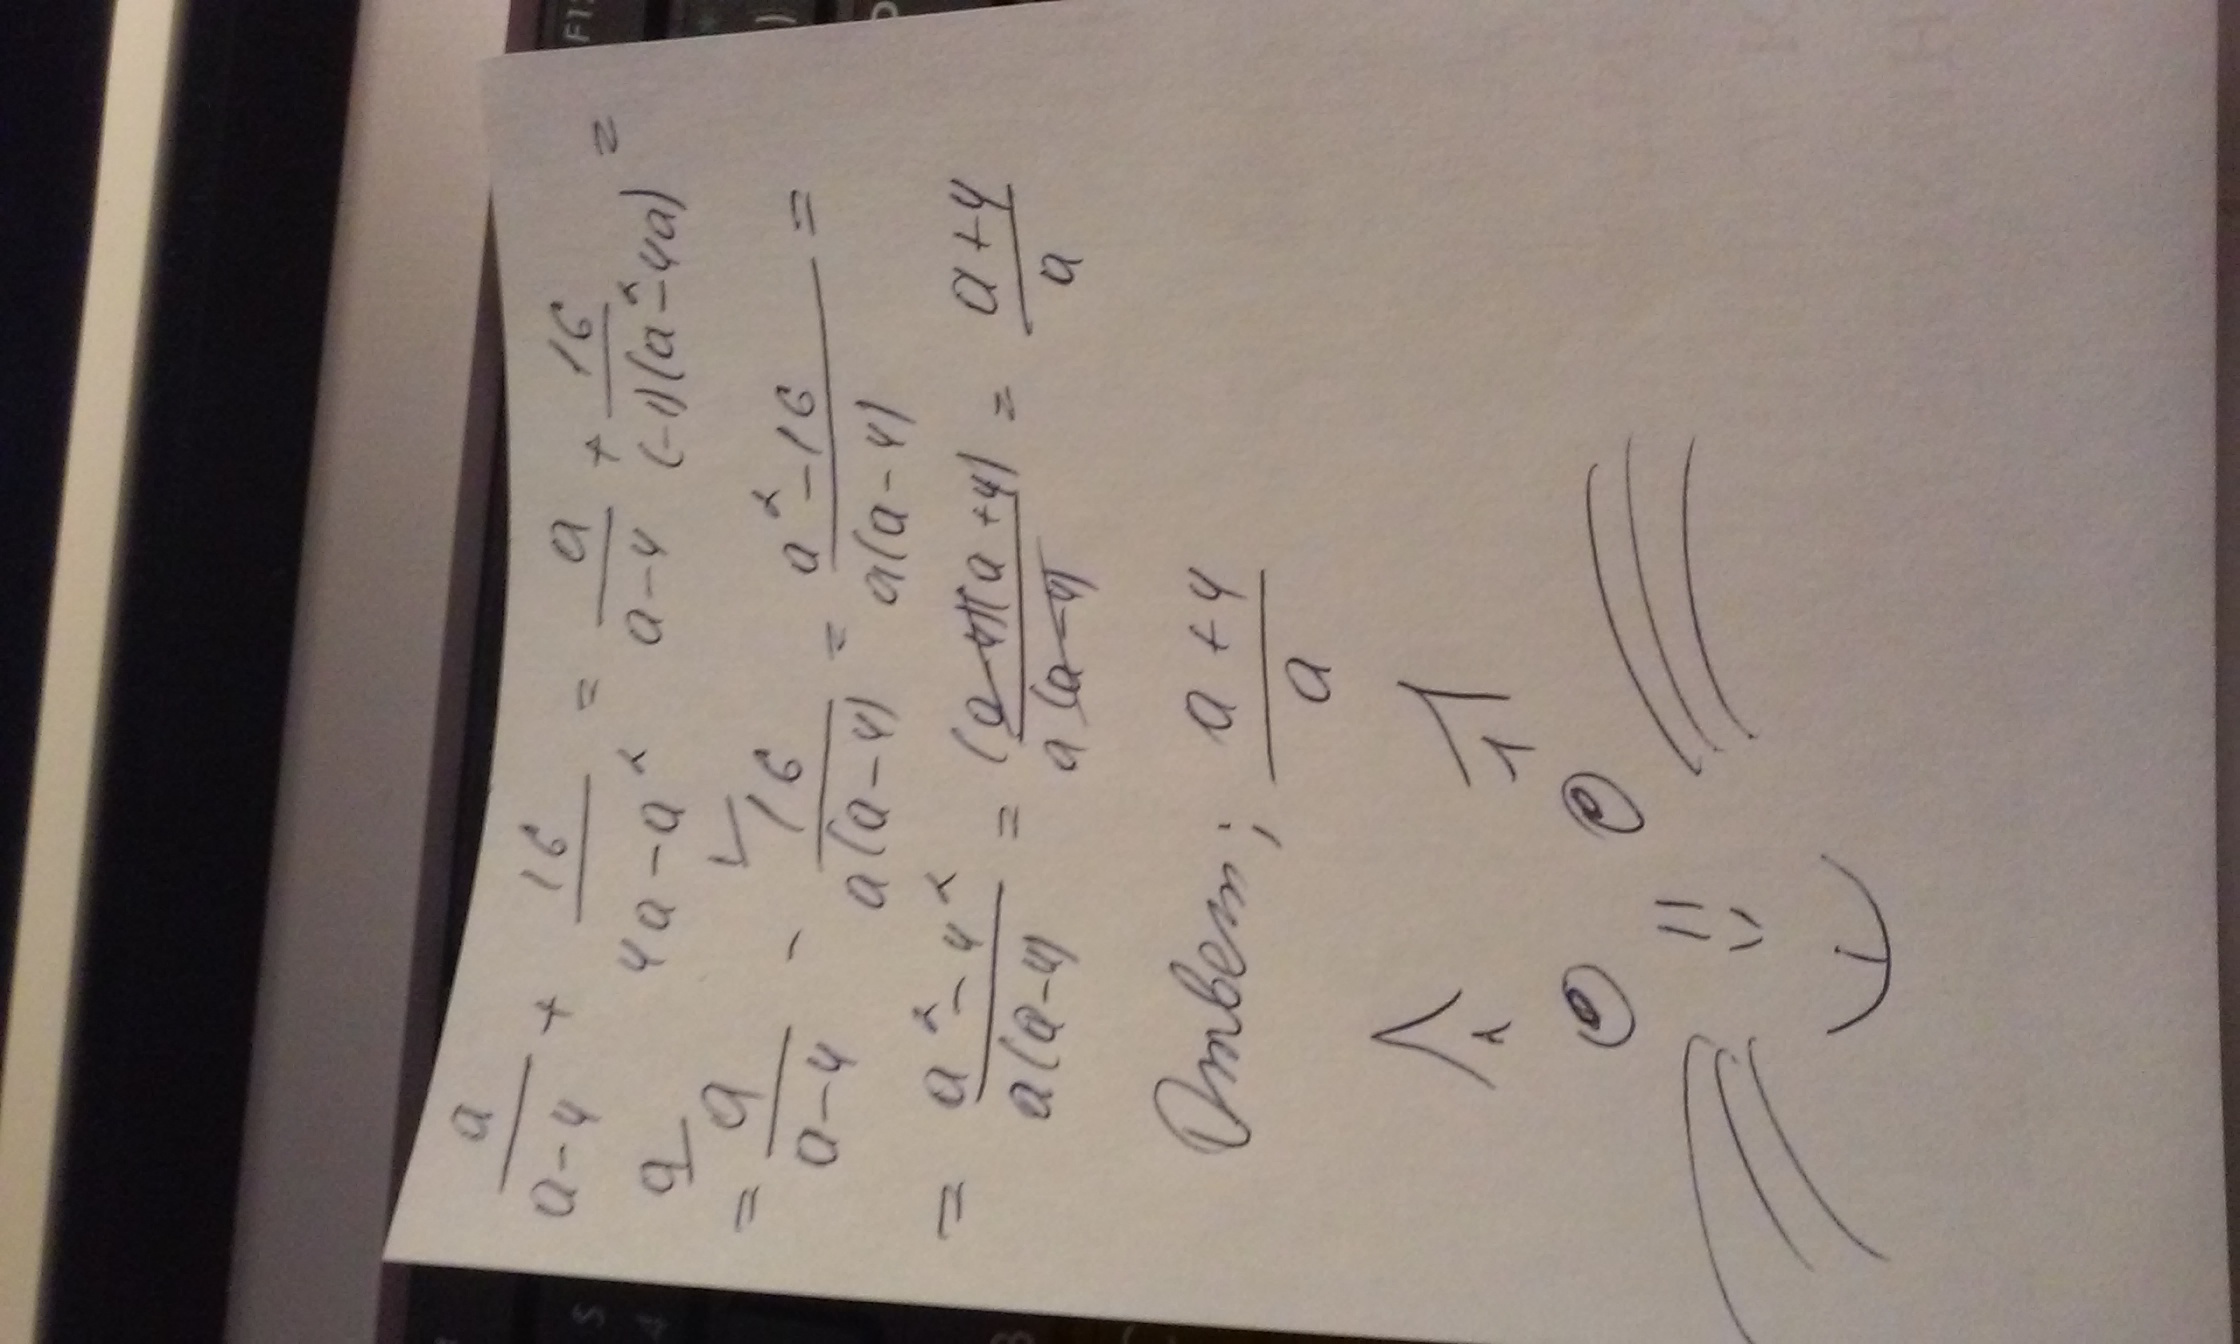 a/(a-4) + 16/(4a-a²) = a/(a-4) + 16/((-1)(a²-4a)) =
= a/(a-4) - 16/(a(a-4)) = (a²-16)/(a(a-4)) =
= (a²-4²)/(a(a-4)) = ((a-4)(a+4))/(a(a-4)) = (a+4)/a
Ответ; (a+4)/a